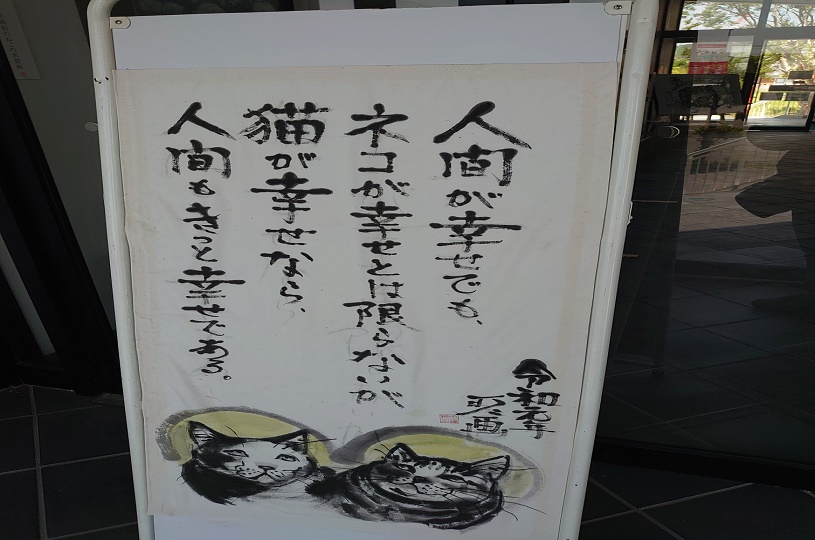 人間が幸せでも、
ネコが幸せとは限らないが
猫が幸せなら、
人間もきっと幸せである。
令和元年